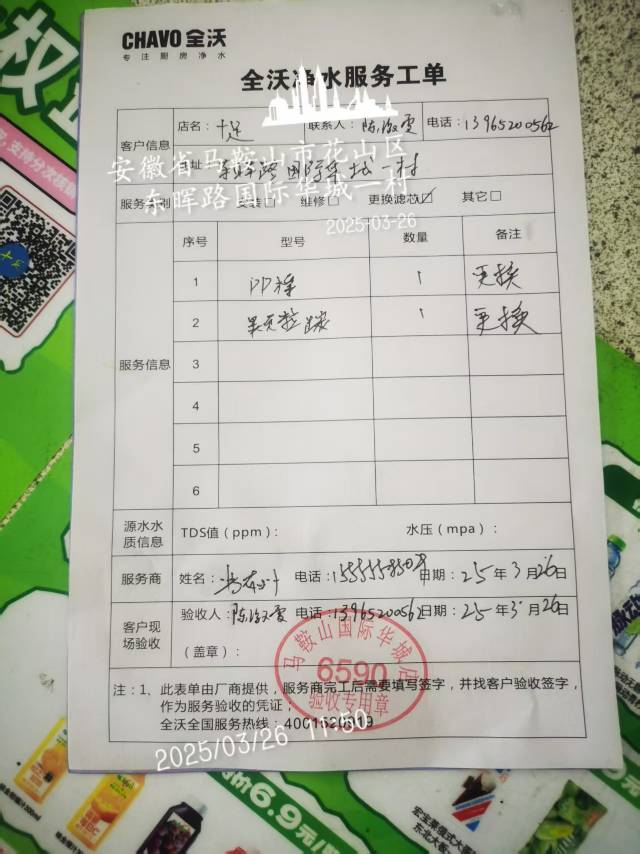 CHAVO 全沃
专注厨房净水
全沃净水服务工单
客户信息
店名：十足
联系人：
电话：13965200562
地址：东晖路国际华城一村
安徽省马鞍山市花山区
东晖路国际华城一村
2025-03-26
服务类别
安装□ 维修□ 更换滤芯☑ 其它□
服务信息
序号 型号 数量 备注
1 PP棉 1 更换
2 1 更换
3
4
5
6
源水水质信息
TDS值（ppm）： 水压（mpa）：
服务商
姓名： 电话： 日期：25年3月26日
客户现场验收
验收人： 电话：13965200562 日期：25年3月26日
（盖章）：
马鞍山国际华城店
6590
验收专用章
注：1、此表单由厂商提供，服务商完工后需要填写签字，并找客户验收签字，
作为服务验收的凭证；
全沃全国服务热线：4001520919
2025/03/26 11:50
支持分次核
价6.9元/
东北大板